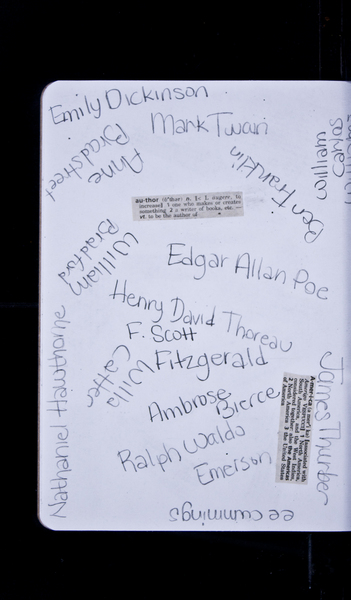 Emily Dickinson
Mark Twain
Anne
Bradstreet
Ben Franklin
William
au·thor (ô′thər) n. [< L augere, to
increase] 1 one who makes or creates
something 2 a writer of books, etc. —
vt. to be the author of
William
Bradford
Edgar Allan Poe
Henry David Thoreau
F. Scott
Fitzgerald
Willa
Cather
Nathaniel Hawthorne
Ambrose
Bierce
Ralph Waldo
Emerson
James Thurber
A·mer·i·ca
1 North America,
South America, and the West Indies,
considered together: also the Americas
2 North America 3 the United States
of America
ee cummings